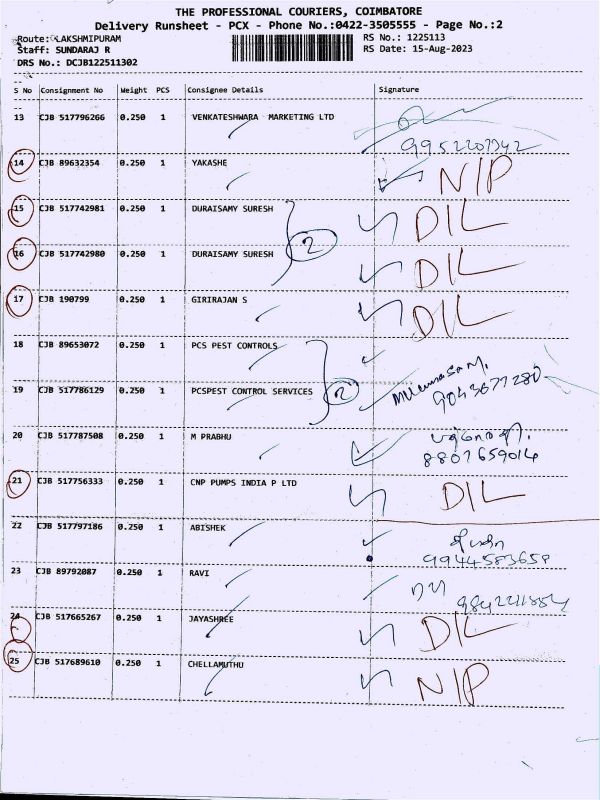 THE PROFESSIONAL COURIERS, COIMBATORE
Delivery Runsheet - PCX - Phone No.:0422-3505555 - Page No.:2
Route: LAKSHMIPURAM RS No.: 1225113
Staff: SUNDARAJ R RS Date: 15-Aug-2023
DRS No.: DCJB122511302
S No Consignment No Weight PCS Consignee Details Signature
13 CJB 517796266 0.250 1 VENKATESHWARA MARKETING LTD
9952207342
14 CJB 89632354 0.250 1 YAKASHE N/P
15 CJB 517742981 0.250 1 DURAISAMY SURESH D/L
2
16 CJB 517742980 0.250 1 DURAISAMY SURESH D/L
17 CJB 190799 0.250 1 GIRIRAJAN S D/L
18 CJB 89653072 0.250 1 PCS PEST CONTROLS
19 CJB 517786129 0.250 1 PCSPEST CONTROL SERVICES 2
9043677280
20 CJB 517787508 0.250 1 M PRABHU
8807659014
21 CJB 517756333 0.250 1 CNP PUMPS INDIA P LTD D/L
22 CJB 517797186 0.250 1 ABISHEK
9944583658
23 CJB 89792087 0.250 1 RAVI
24 CJB 517665267 0.250 1 JAYASHREE D/L
25 CJB 517689610 0.250 1 CHELLAMUTHU N/P